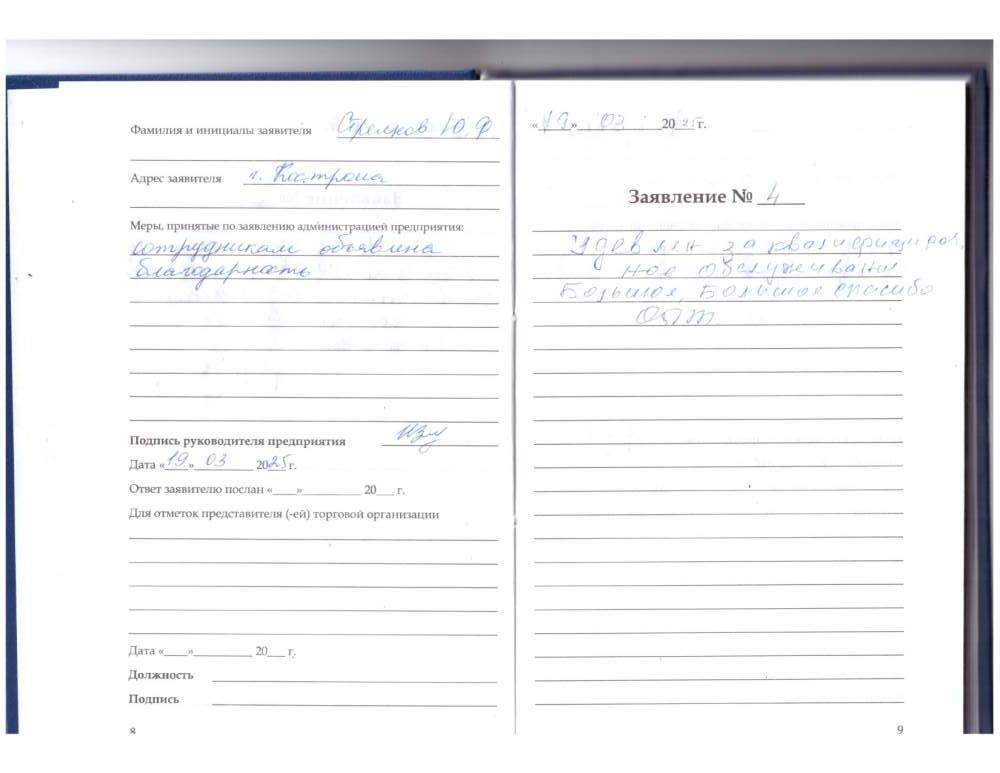 Фамилия и инициалы заявителя Стрелков Ю. Ф
Адрес заявителя г. Кострома
Меры, принятые по заявлению администрацией предприятия:
сотрудникам объявина
благодарность
Подпись руководителя предприятия
Дата «19» 03 2025 г.
Ответ заявителю послан «___»__________ 20___ г.
Для отметок представителя (-ей) торговой организации
Дата «____»__________ 20___ г.
Должность
Подпись
8
«19» 03 2025 г.
Заявление № 4
Удевлен за квалифициров.
ное обслуживани
Большое, Большое спасибо
9